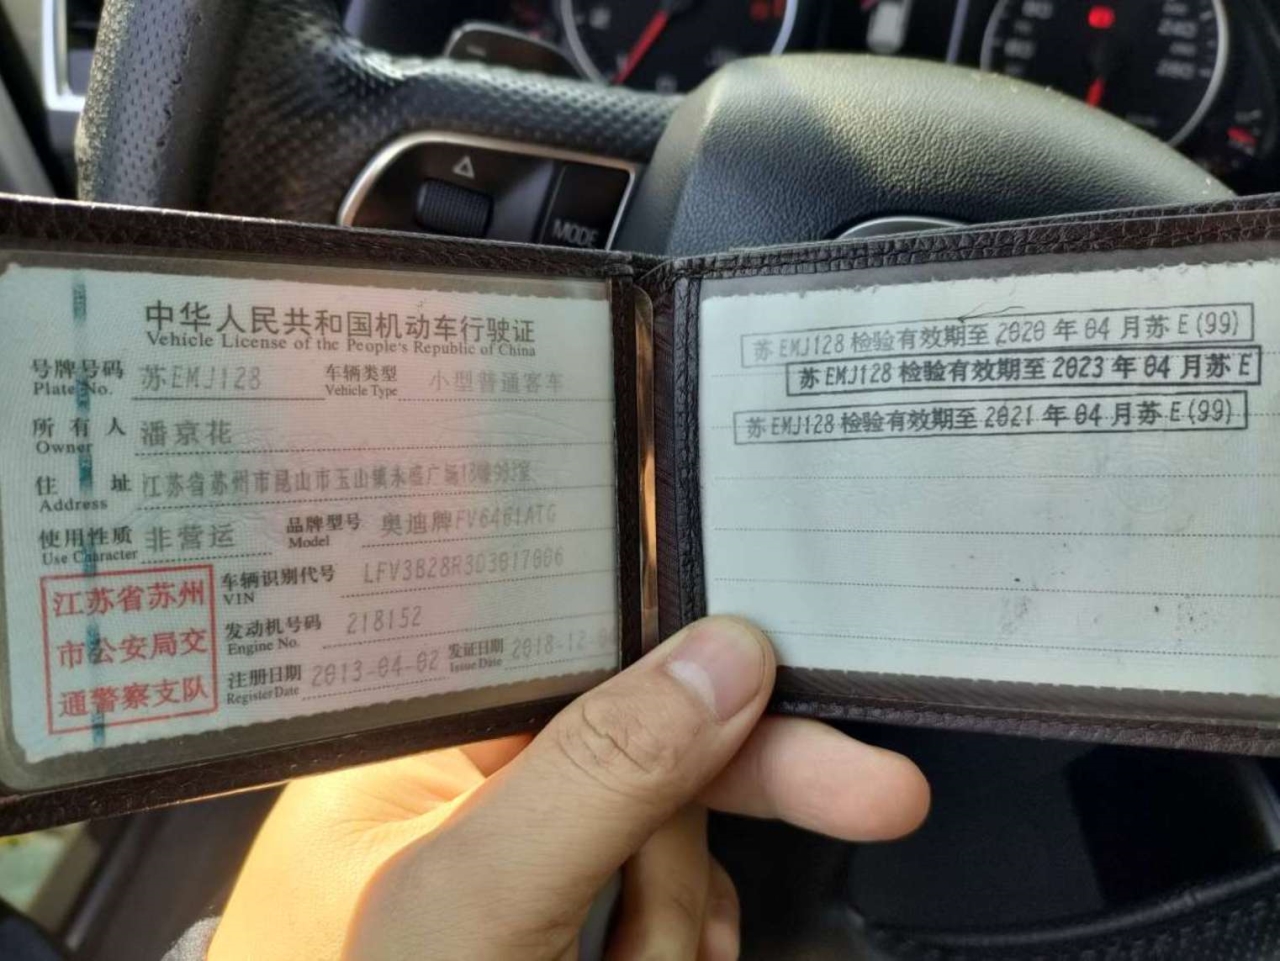 MODE
中华人民共和国机动车行驶证
Vehicle License of the People's Republic of China
号牌号码 苏EMJ128 车辆类型 小型普通客车
Plate No. Vehicle Type
所有人 潘京花
Owner
住址 江苏省苏州市昆山市玉山镇永盛广场18幢
Address
使用性质 非营运 品牌型号 奥迪牌FV6461ATG
Use Character Model
车辆识别代号 LFV3B28R3D3017006
VIN
发动机号码 218152
Engine No.
注册日期 2013-04-02 发证日期 2018-12-0
Register Date Issue Date
江苏省苏州
市公安局交
通警察支队
苏EMJ128检验有效期至2020年04月苏E(99)
苏EMJ128检验有效期至2023年04月苏E
苏EMJ128检验有效期至2021年04月苏E(99)